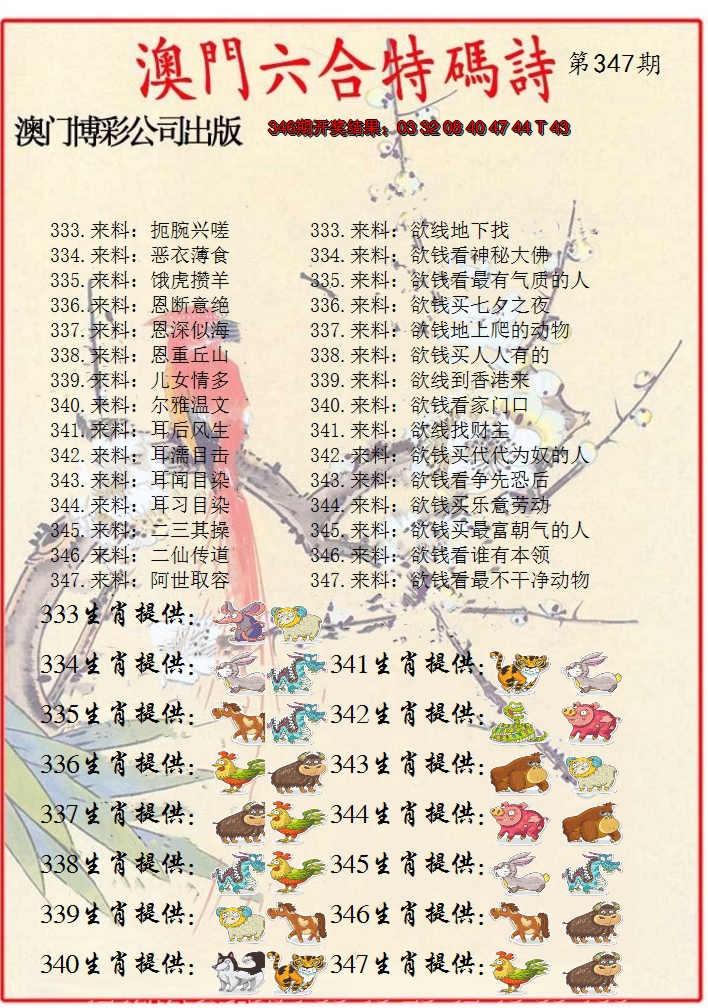 澳門六合特碼詩 第347期
澳门博彩公司出版 346期开奖结果：03 32 08 40 47 44 T 43
333.来料：扼腕兴嗟 333.来料：欲线地下找
334.来料：恶衣薄食 334.来料：欲钱看神秘大佛
335.来料：饿虎攒羊 335.来料：欲钱看最有气质的人
336.来料：恩断意绝 336.来料：欲钱买七夕之夜
337.来料：恩深似海 337.来料：欲钱地上爬的动物
338.来料：恩重丘山 338.来料：欲钱买人人有的
339.来料：儿女情多 339.来料：欲线到香港来
340.来料：尔雅温文 340.来料：欲钱看家门口
341.来料：耳后风生 341.来料：欲线找财主
342.来料：耳濡目击 342.来料：欲钱买代代为奴的人
343.来料：耳闻目染 343.来料：欲钱看争先恐后
344.来料：耳习目染 344.来料：欲钱买乐意劳动
345.来料：二三其操 345.来料：欲钱买最富朝气的人
346.来料：二仙传道 346.来料：欲钱看谁有本领
347.来料：阿世取容 347.来料：欲钱看最不干净动物
333生肖提供：
334生肖提供： 341生肖提供：
335生肖提供： 342生肖提供：
336生肖提供： 343生肖提供：
337生肖提供： 344生肖提供：
338生肖提供： 345生肖提供：
339生肖提供： 346生肖提供：
340生肖提供： 347生肖提供：